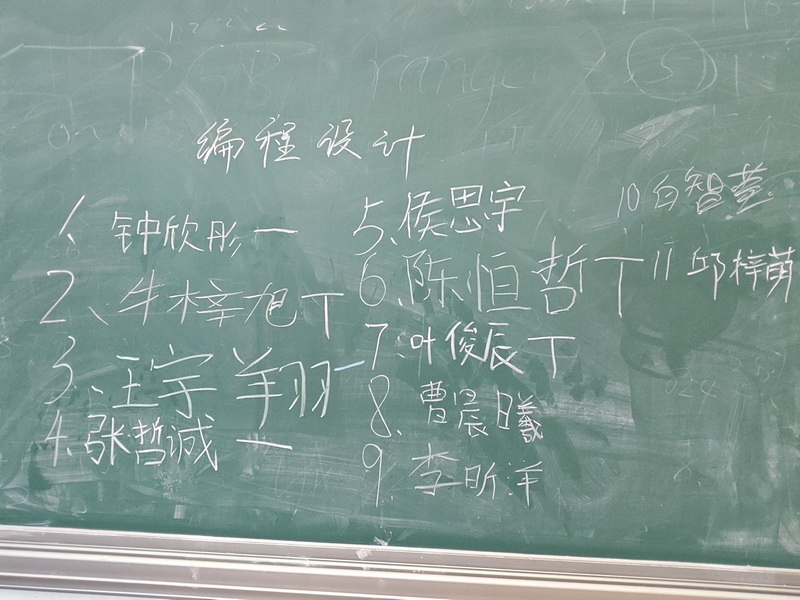 编程设计
1、钟欣彤一
2、牛梓旭丅
3、王宇翔一
4、张哲诚一
5、侯思宇
6、陈恒哲丅
7、叶俊辰丅
8、曹晨曦
9、李昕洋
10白智萱
11邱梓萌